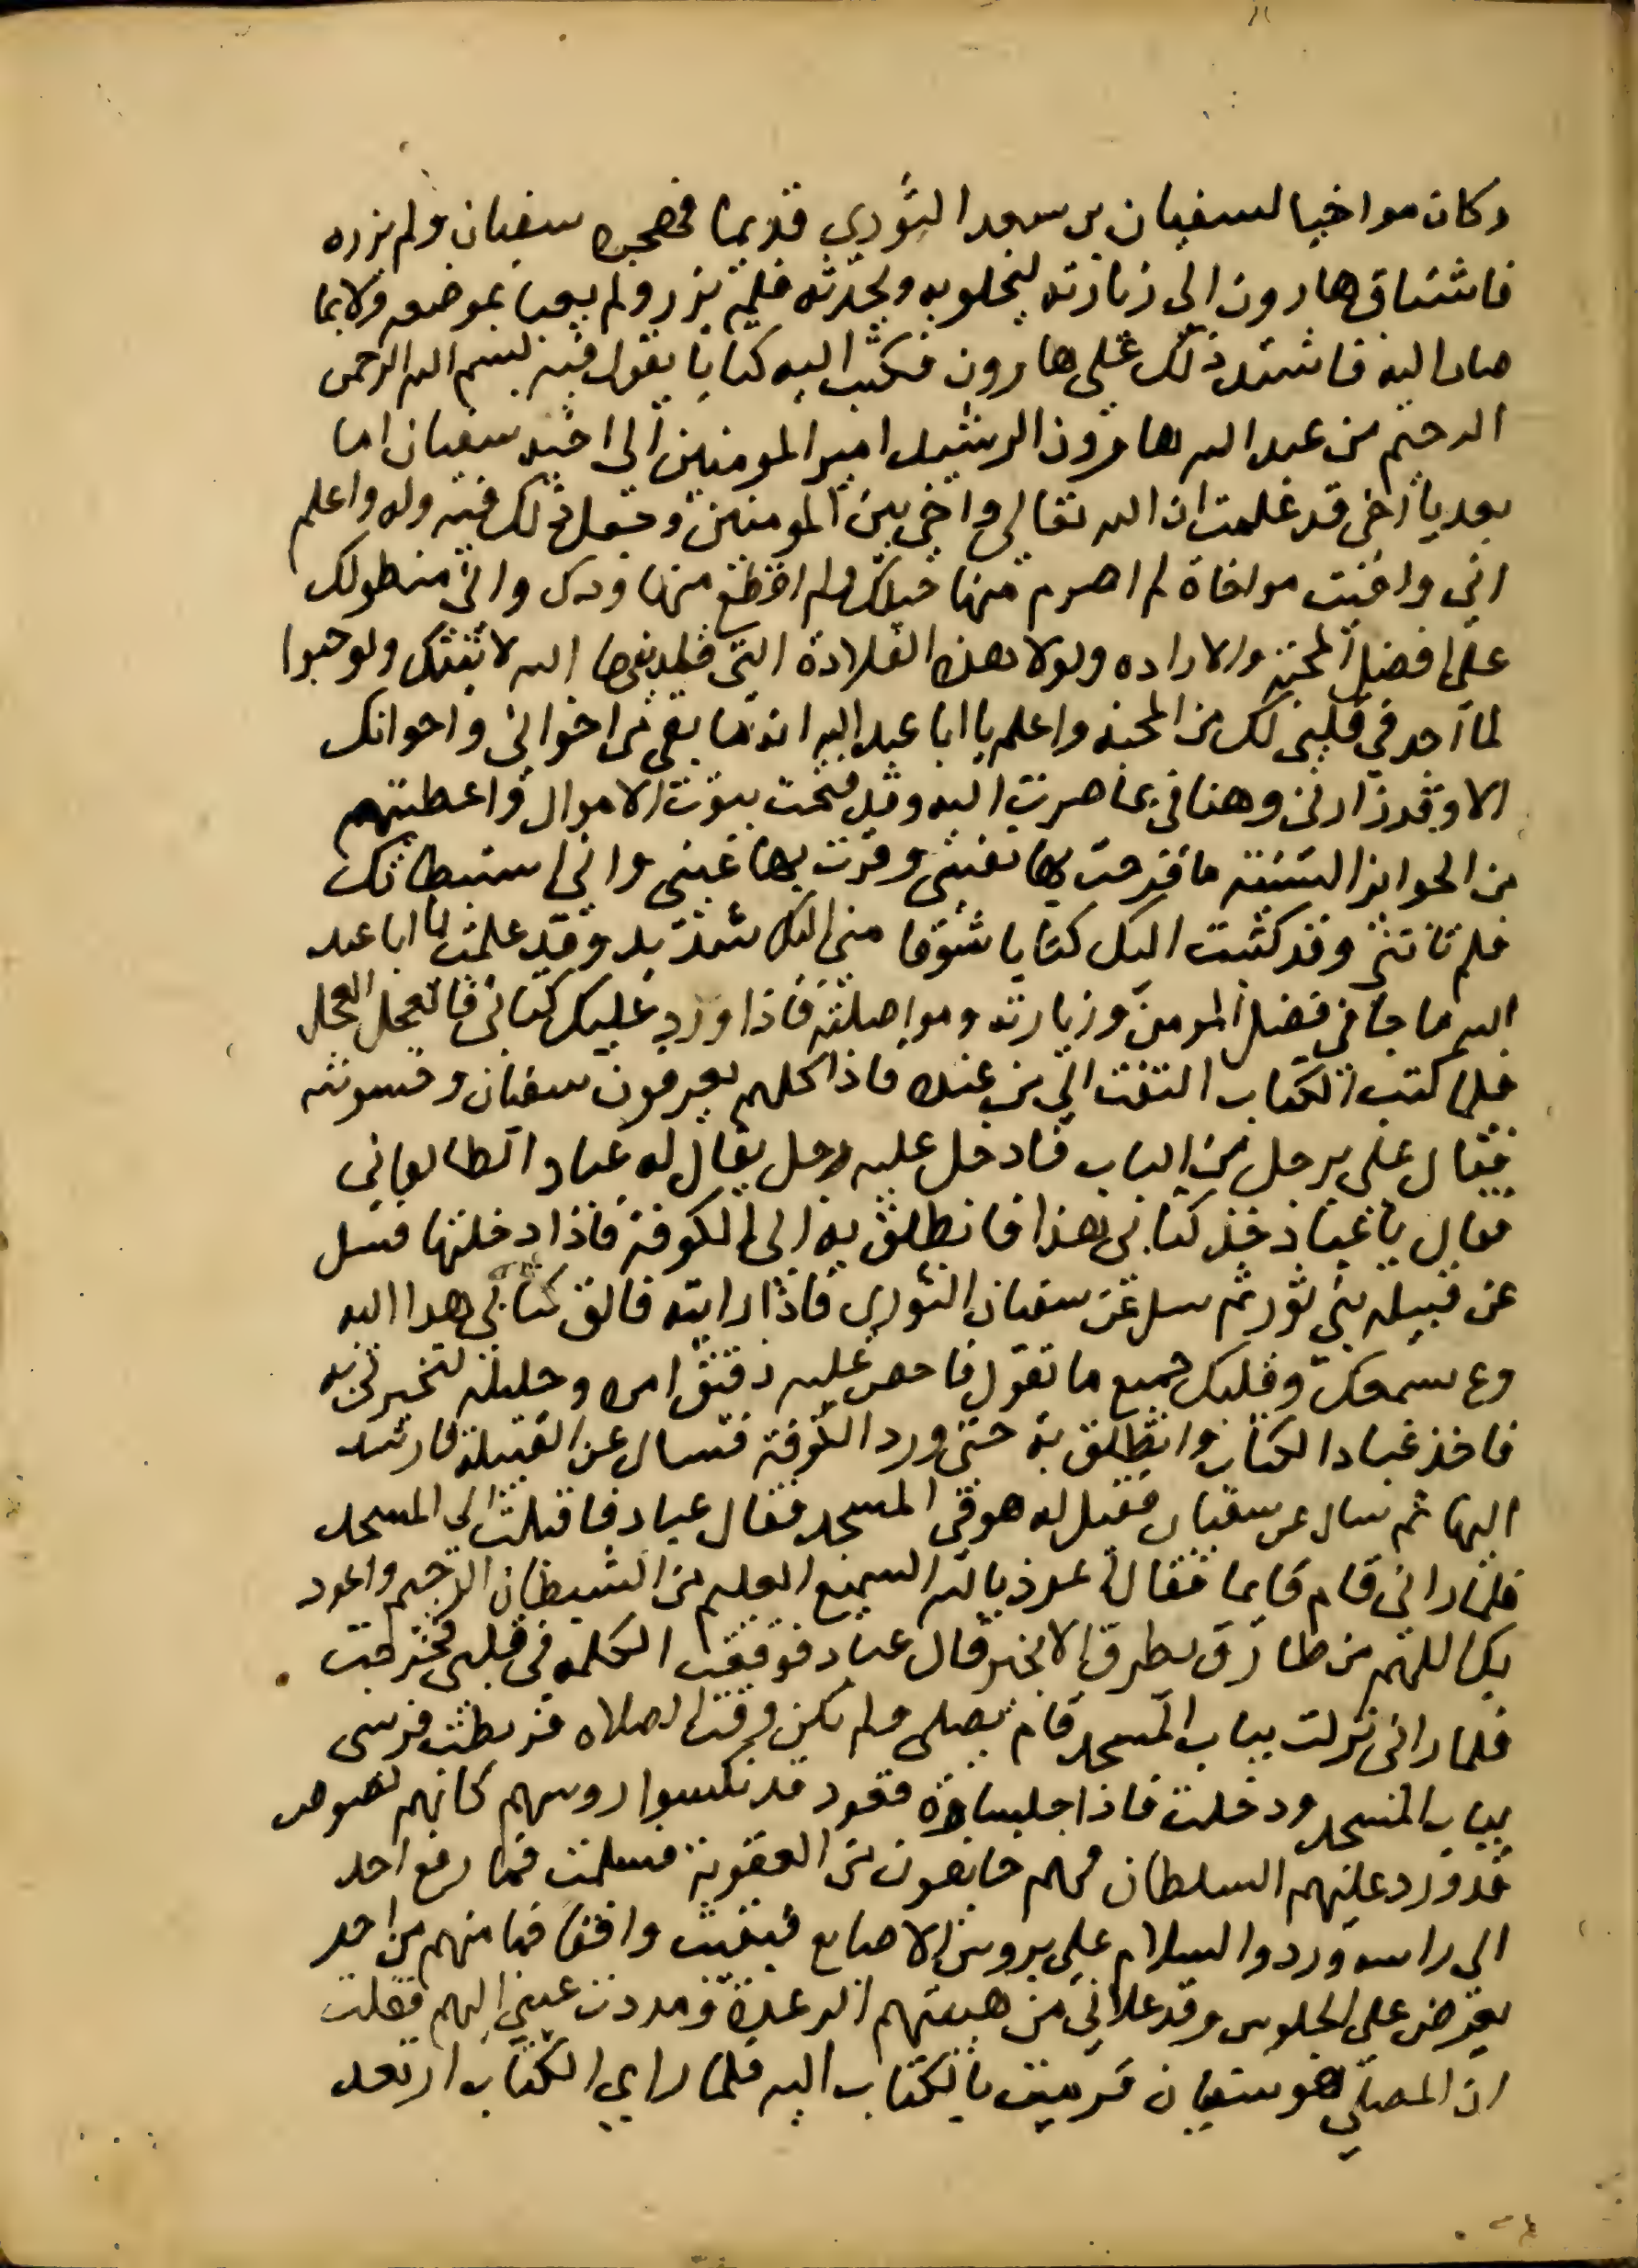 وكان مواخيا لسفيان بن سعيد الثوري قديما فهجره سفيان ولم يزره
فاشتاق هارون الى زيارته ليخلوبه ويحدثه فلم يزر ولم يعبا بموضعه ولا بما
صار اليه فاشتد ذلك على هارون فكتب اليه كتابا يقول فيه بسم الله الرحمن
الرحيم من عبد الله هارون الرشيد امير المومنين الى اخيه سفيان اما
بعد يا اخي قد علمت ان الله تعالى واخى بين المومنين وجعل ذلك فيه وله واعلم
اني واخيت مواخاة لم اصرم منها حبلك ولم اقطع منها ودك واني منطو لك
على افضل المحبه والاراده ولولا هذه القلادة التي قلدنيها الله لاتيتك ولو حبوا
لما اجد في قلبي لك من المحبه واعلم يا ابا عبد الله انه ما بقي من اخواني واخوانك
الا وقد زارني وهناني بما صرت اليه وقد فتحت بيوت الاموال واعطيتهم
من الجوايز السنية ما فرحت به نفسي وقرت بها عيني واني استبطاتك
فلم تاتني وقد كتبت اليك كتابا شوقا مني اليك شديد وقد علمت يا ابا عبد
الله ما جا في فضل المومن وزيارته ومواصلته فاذا ورد عليك كتابي فالعجل العجل
فلما كتب الكتاب التفت الى من عنده فاذا كلهم يعرفون سفيان وخشونته
فقال علي برجل من الباب فادخل عليه رجل يقال له عباد الطالقاني
فقال يا عباد خذ كتابي هذا فانطلق به الى الكوفة فاذا دخلتها فسل
عن قبيله بني ثور ثم سل عن سفيان الثوري فاذا رايته فالق كتابي هذا اليه
وع بسمعك وقلبك جميع ما تقول فاحص عليه دقيق امره وجليله لتخبرني به
فاخذ عباد الكتاب وانطلق به حتى ورد الكوفة فسال عن القبيلة فارشد
اليها ثم سال عن سفيان فقيل له هو في المسجد فقال عباد فاقبلت الى المسجد
فلما راني قام قايما فقال اعوذ بالله السميع العليم من الشيطان الرجيم واعوذ
بك اللهم من طارق يطرق الا بخير قال عباد فوقعت الكلمه في قلبي فخرجت
فلما راني نزلت بباب المسجد قام يصلي ولم يكن وقت الصلاه فربطت فرسي
بباب المسجد ودخلت فاذا جلساوه قعود قد نكسوا روسهم كانهم لصوص
قد ورد عليهم السلطان فهم خايفون من العقوبة فسلمت فما رفع احد
الي راسه وردوا السلام علي بروس الاصابع فبقيت واقفا فما منهم من احد
يعرض علي الجلوس وقد علاني من هيبتهم الرعدة ومددت عيني اليهم فقلت
ان المصلي هو سفيان فرميت بالكتاب اليه فلما راى الكتاب ارتعد